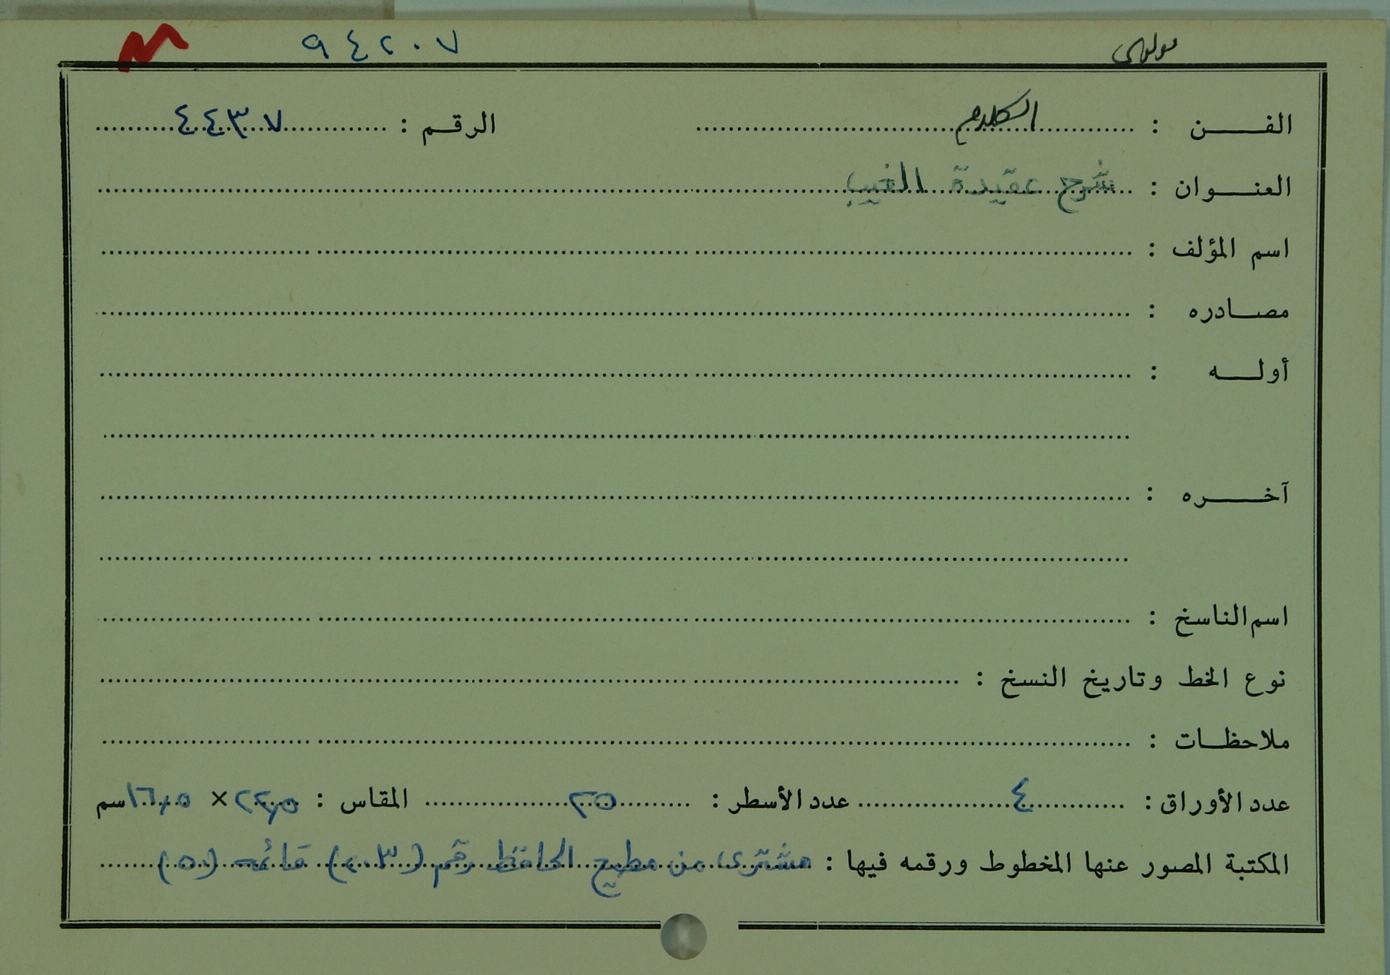 ٩٤٢٠٧
الفن : الكلام الرقم : ٤٤٣٧
العنوان : شرح عقيدة الغيب
اسم المؤلف :
مصادره :
أوله :
آخره :
اسم الناسخ :
نوع الخط وتاريخ النسخ :
ملاحظات :
عدد الأوراق : ٤ عدد الأسطر : ٢٥ المقاس : ٢٢,٥ × ١٦,٥ سم
المكتبة المصور عنها المخطوط ورقمه فيها : مشترى من مطيع الحافظ رقم (٢٠٣) قائمة (٥١)